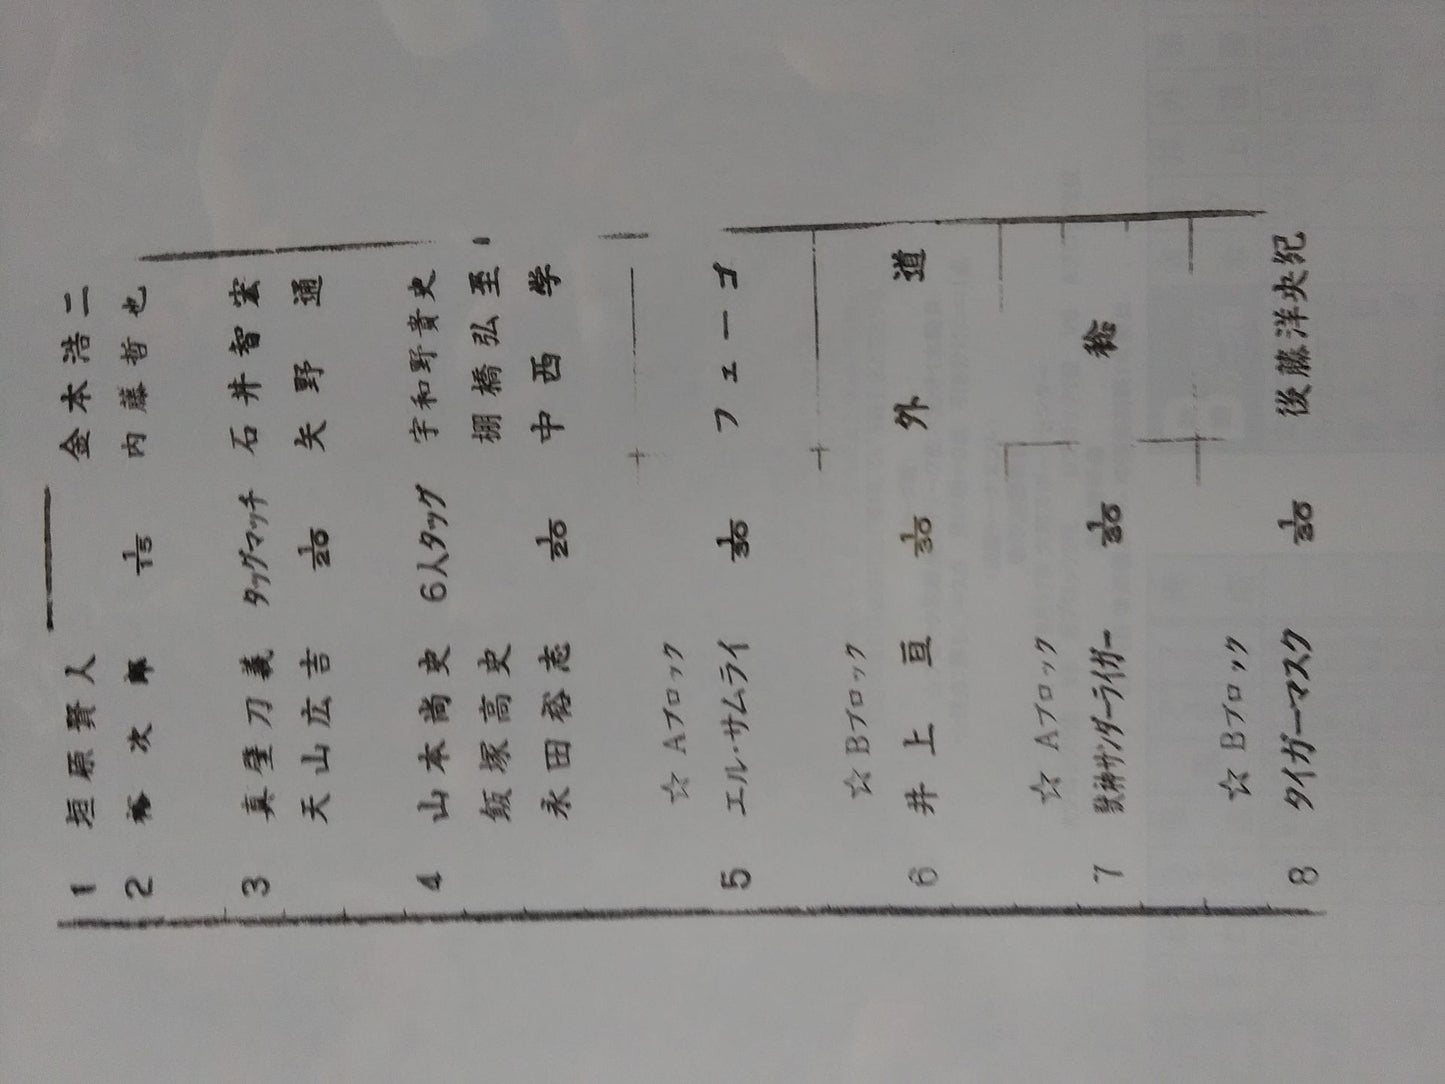 1 垣原賢人 金本浩二
2 裕次郎 1/15 内藤哲也
3 真壁刀義 タッグマッチ 石井智宏
天山広吉 1/20 矢野通
4 山本尚史 6人タッグ 宇和野貴史
飯塚高史 棚橋弘至
永田裕志 1/20 中西学
☆Aブロック
5 エル・サムライ 1/30 フェーゴ
☆Bブロック
6 井上亘 1/30 外道
☆Aブロック
7 獣神サンダーライガー 1/30 稔
☆Bブロック
8 タイガーマスク 1/30 後藤洋央紀